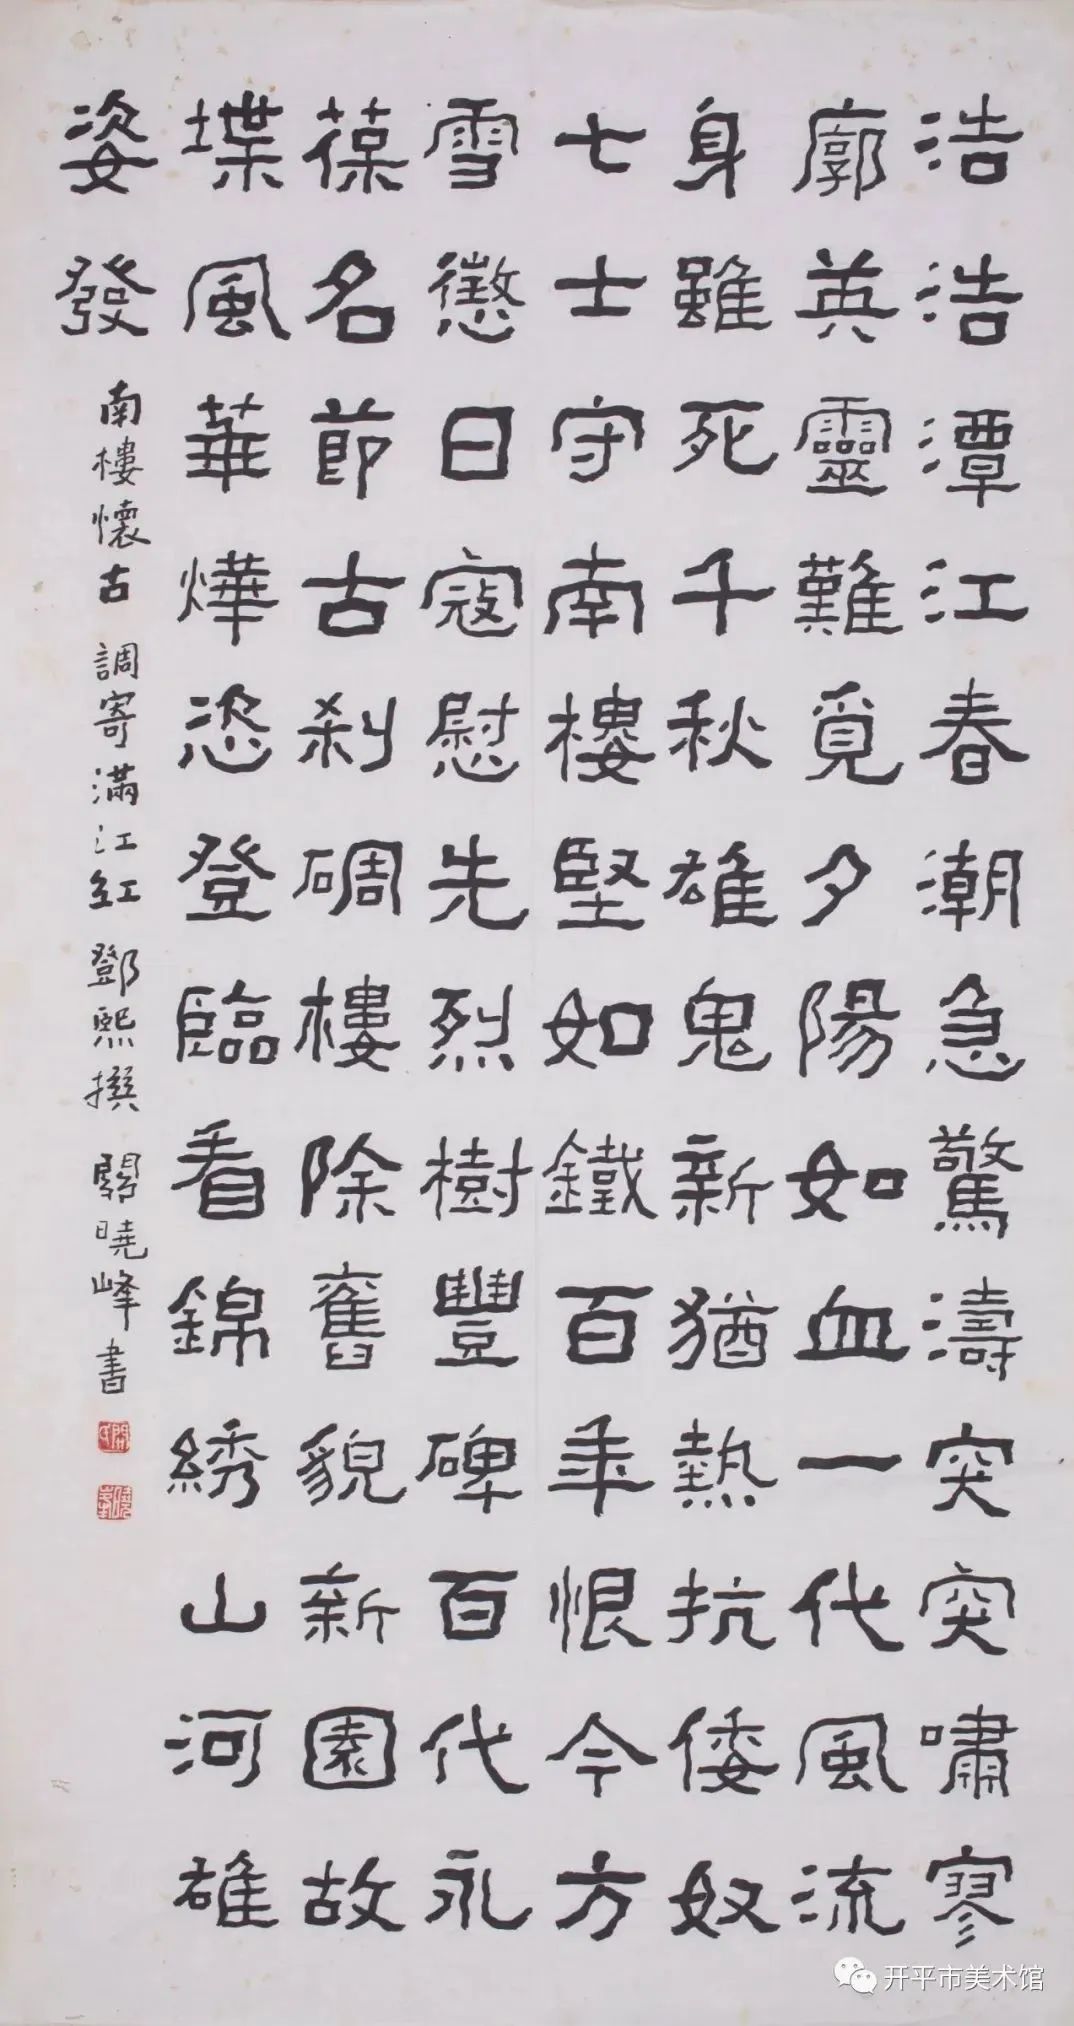 浩浩潭江春潮急驚濤突突嘯寥
廓英靈難覓夕陽如血一代風流
身雖死千秋雄鬼新猶熱抗倭奴
七士守南樓堅如鐵百年恨今方
雪懲日寇慰先烈樹豐碑百代永
葆名節古刹碉樓除舊貌新園故
堞風華燁恣登臨看錦綉山河雄
姿發
南樓懷古 調寄滿江紅 鄧熙撰 關曉峰書
開平市美术馆